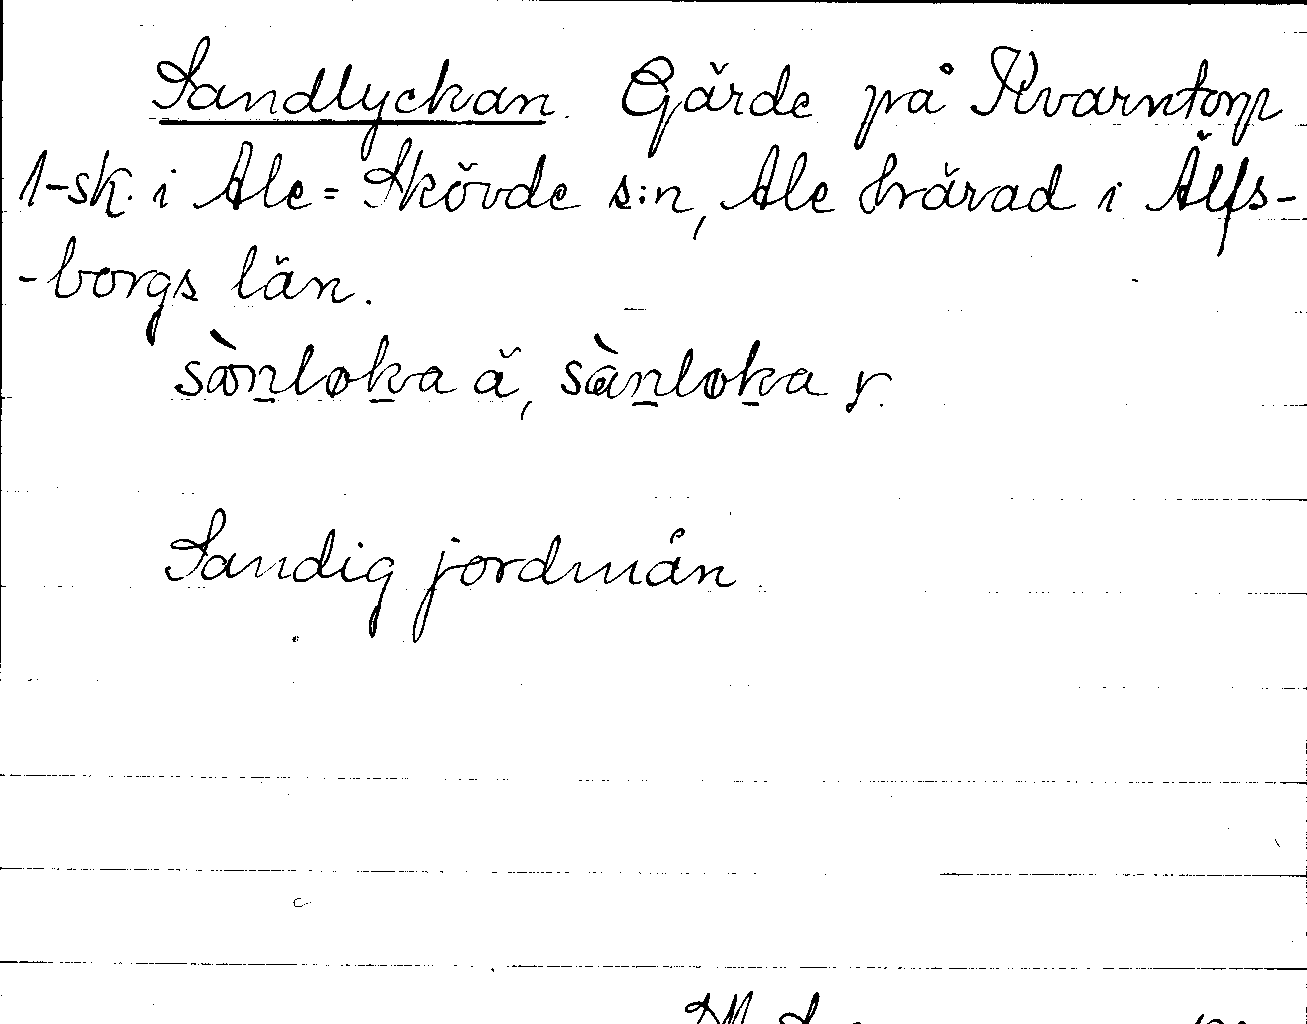 Sandlyckan. Gärde på Kvarntorp
1-sk. i Ale=Skövde s:n, Ale härad i Älfs-
-borgs län.
sàn̠lok̠a ä, sàn̠lok̠a y.
Sandig jordmån